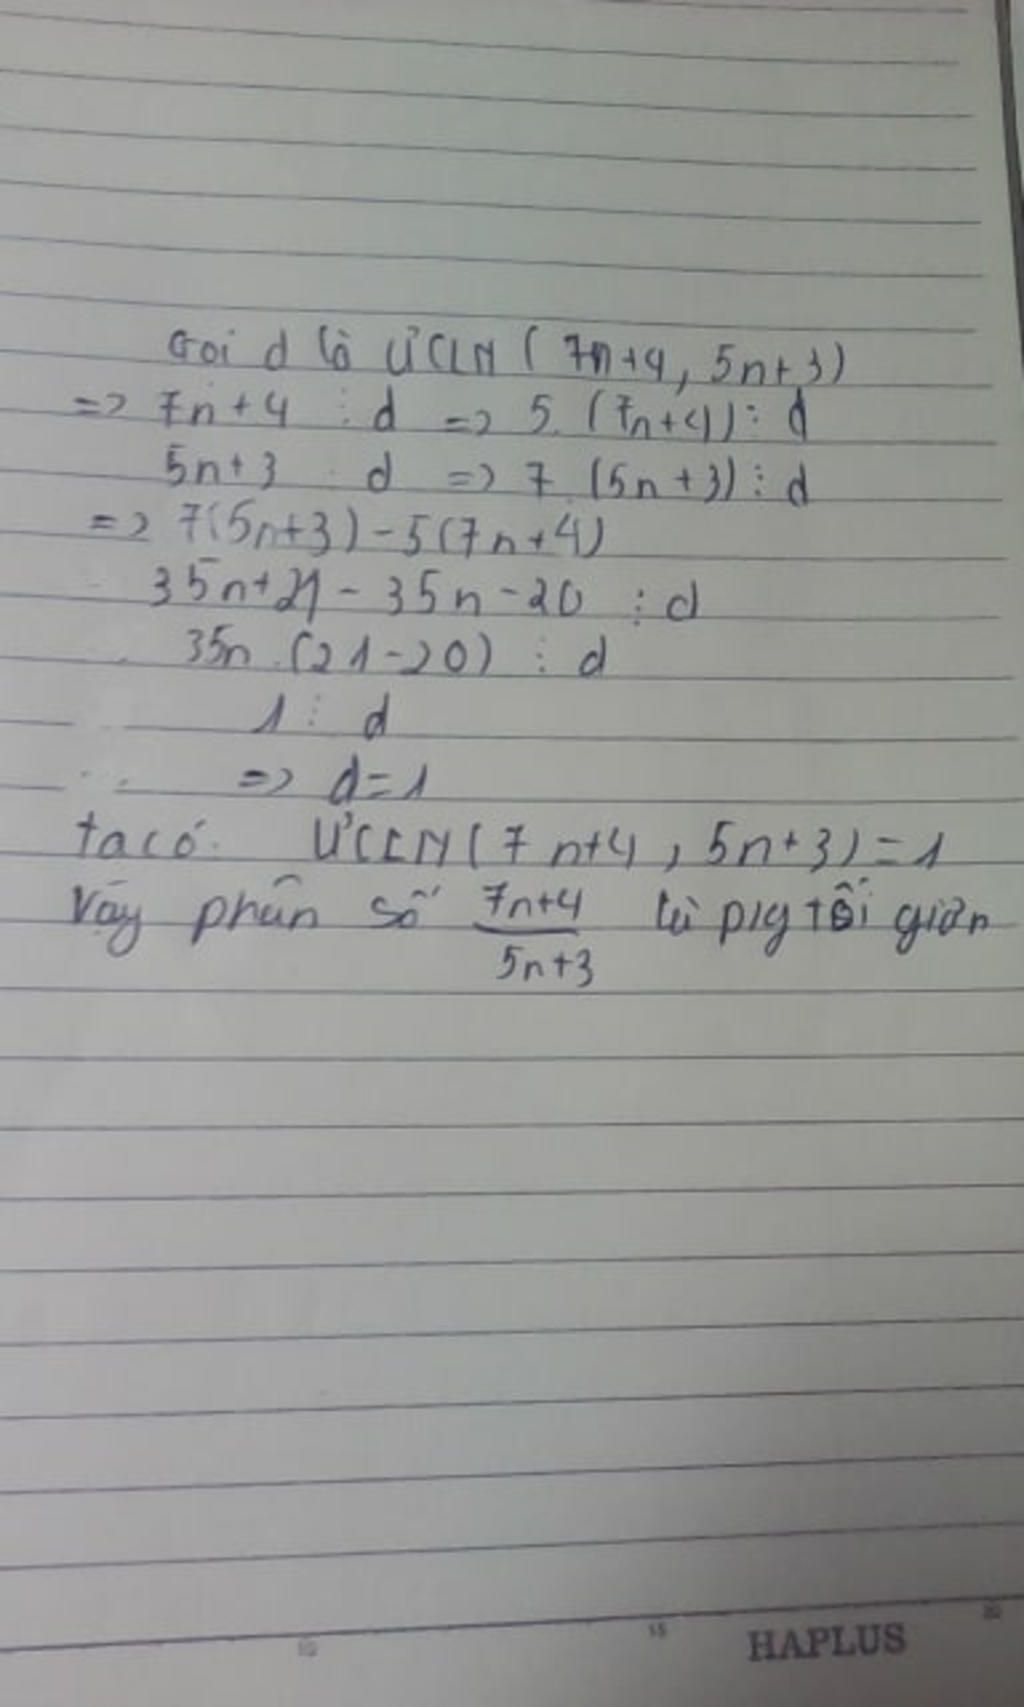 Goi d là ƯCLN ( 7n+4, 5n+3)
=> 7n+4 ⋮ d => 5. (7n+4) ⋮ d
5n+3 ⋮ d => 7 (5n+3) ⋮ d
=> 7(5n+3)-5(7n+4)
35n+21-35n-20 ⋮ d
35n.(21-20) ⋮ d
1 ⋮ d
=> d=1
ta có: ƯCLN(7n+4, 5n+3)=1
Vậy phân số 7n+4/5n+3 là p/g tối giản
10 15 20
HAPLUS